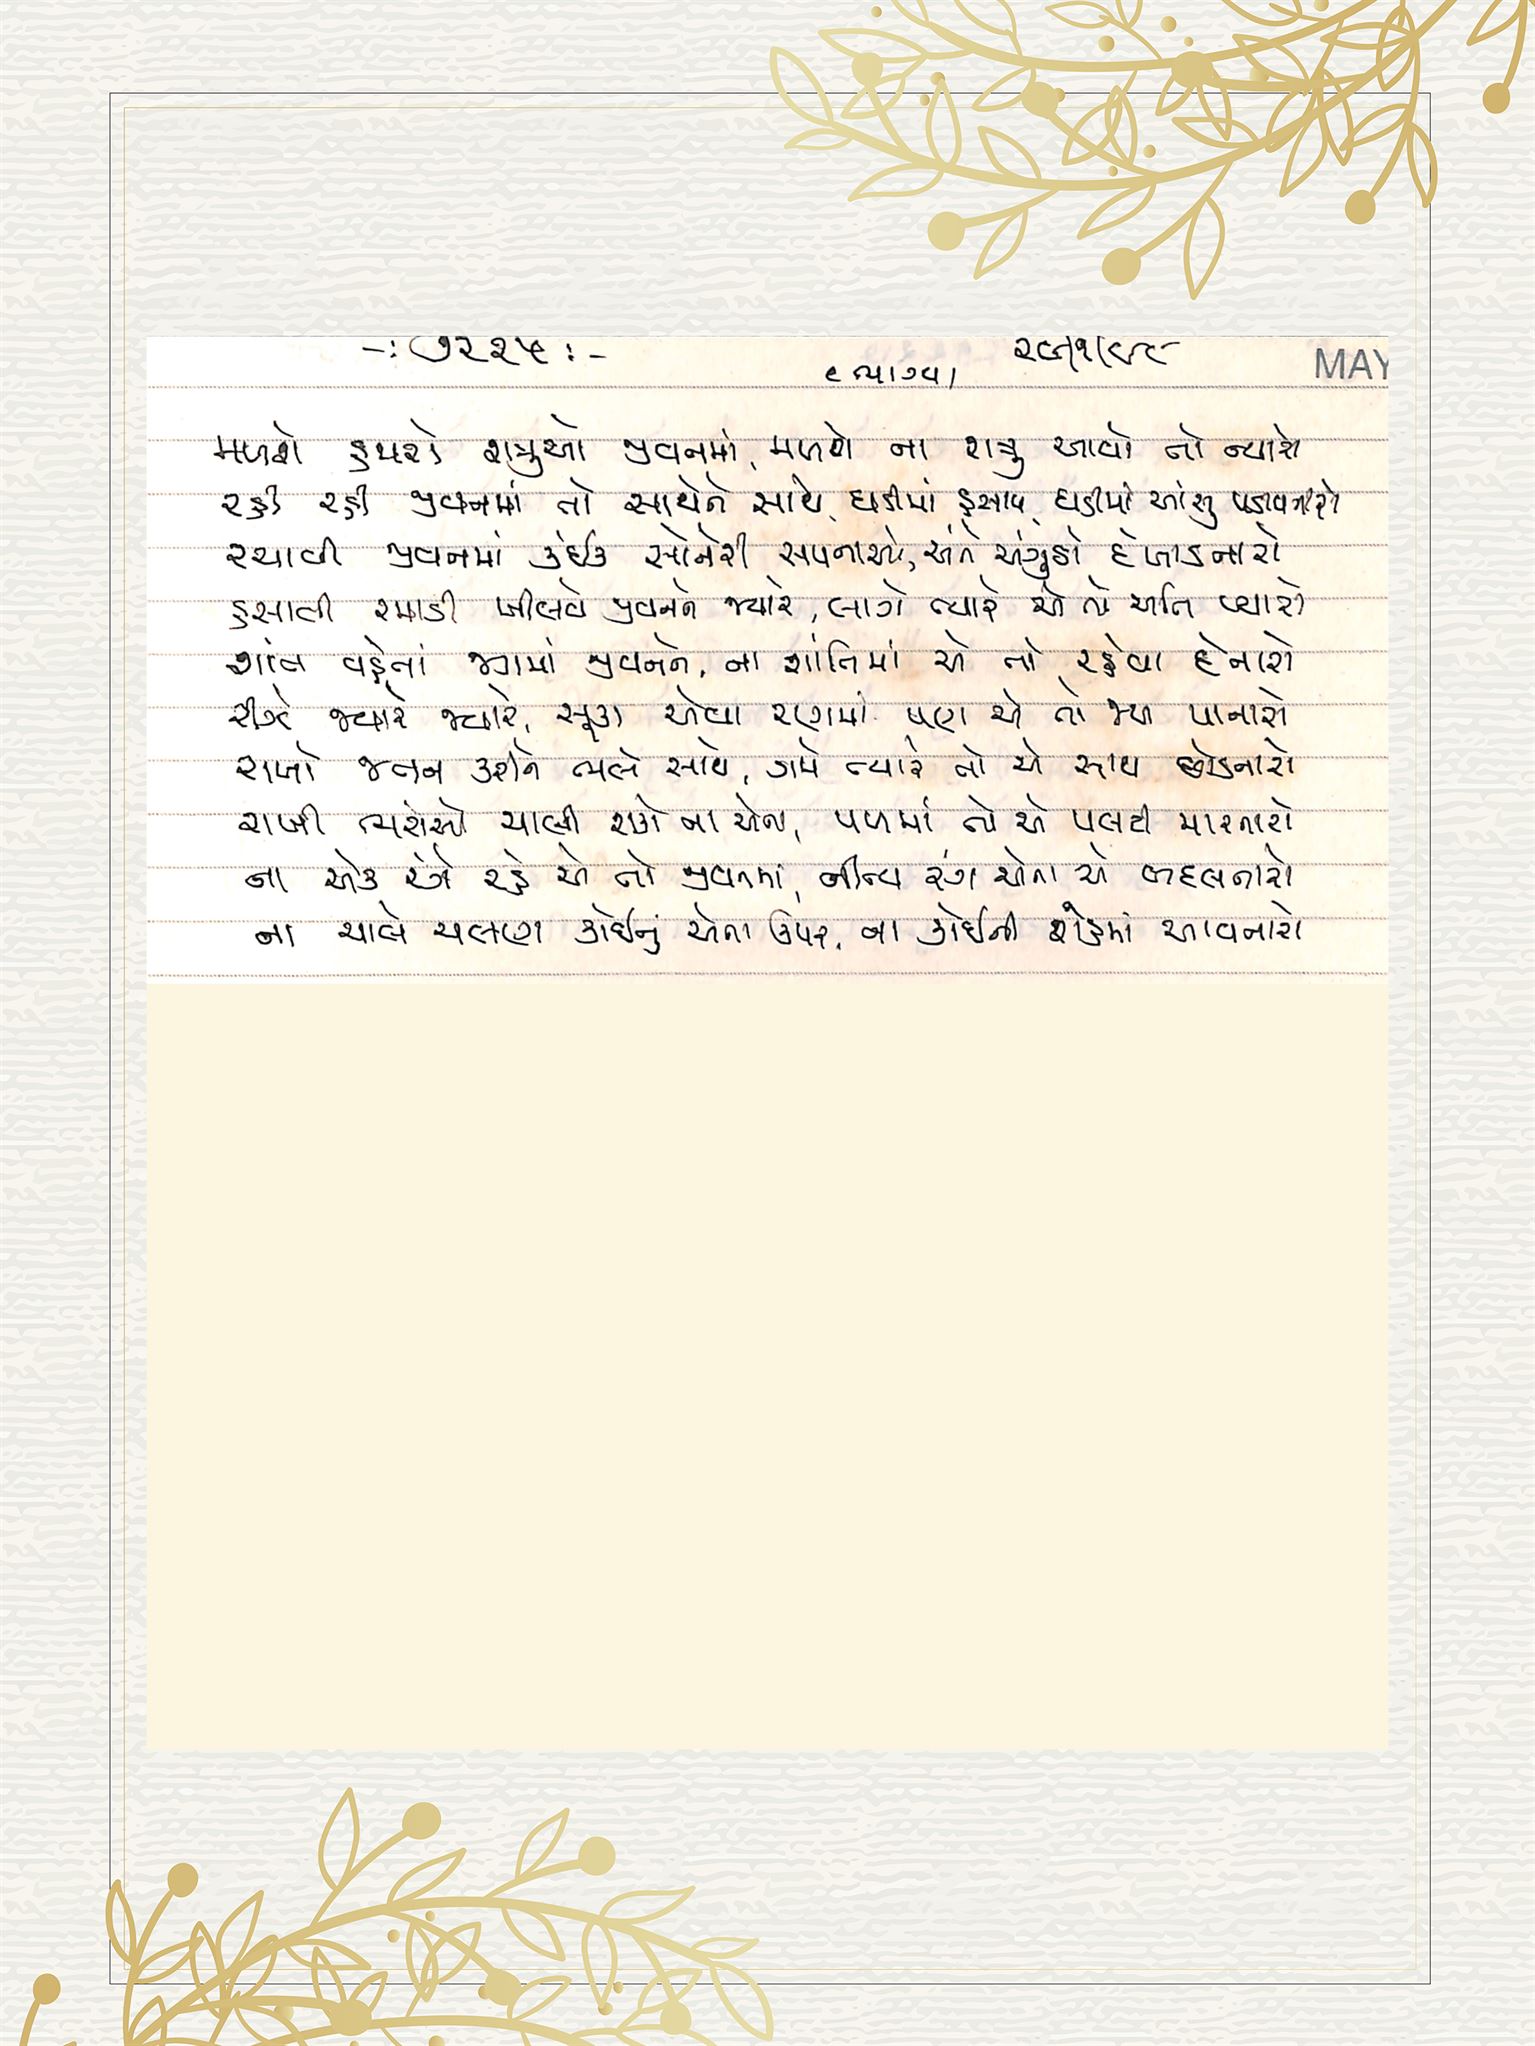 -: ૭૨૨૫ :-
MAY
મળશે હપશે શત્રુઓ જીવનમાં, મળશે ના શત્રુ આવો તો ન્યારો
રહી રહી જીવનમાં તો સાથેને સાથે, ઘડીમાં હસાવે, ઘડીમાં આંસુ પડાવનારો
રચાવી જીવનમાં કંઈક સોનેરી સપનાઓ, અંતે અંગુઠો દેખાડનારો
હસાવી રમાડી ખીલવે જીવનને જ્યારે, લાગે ત્યારે એ તો અતિ પ્યારો
શાંત વહેતાં જગમાં જીવનને, ના શાંતિમાં એ તો રહેવા દેનારો
રીઝે જ્યારે જ્યારે, સૂકા એવા રણમાં પણ એ તો જળ પાનારો
રાખો જતન કરીને ભલે સાથે, ગમે ત્યારે તો એ સાથ છોડનારો
રાખી ભરોસો ચાલી શકે ના એના, પળમાં તો એ પલટી મારનારો
ના એક રંગે રહે એ તો જીવનમાં, નીત્ય રંગ એના એ બદલનારો
ના ચાલે ચલણ કોઈનું એના ઉપર, ના કોઈની શેહમાં આવનારો